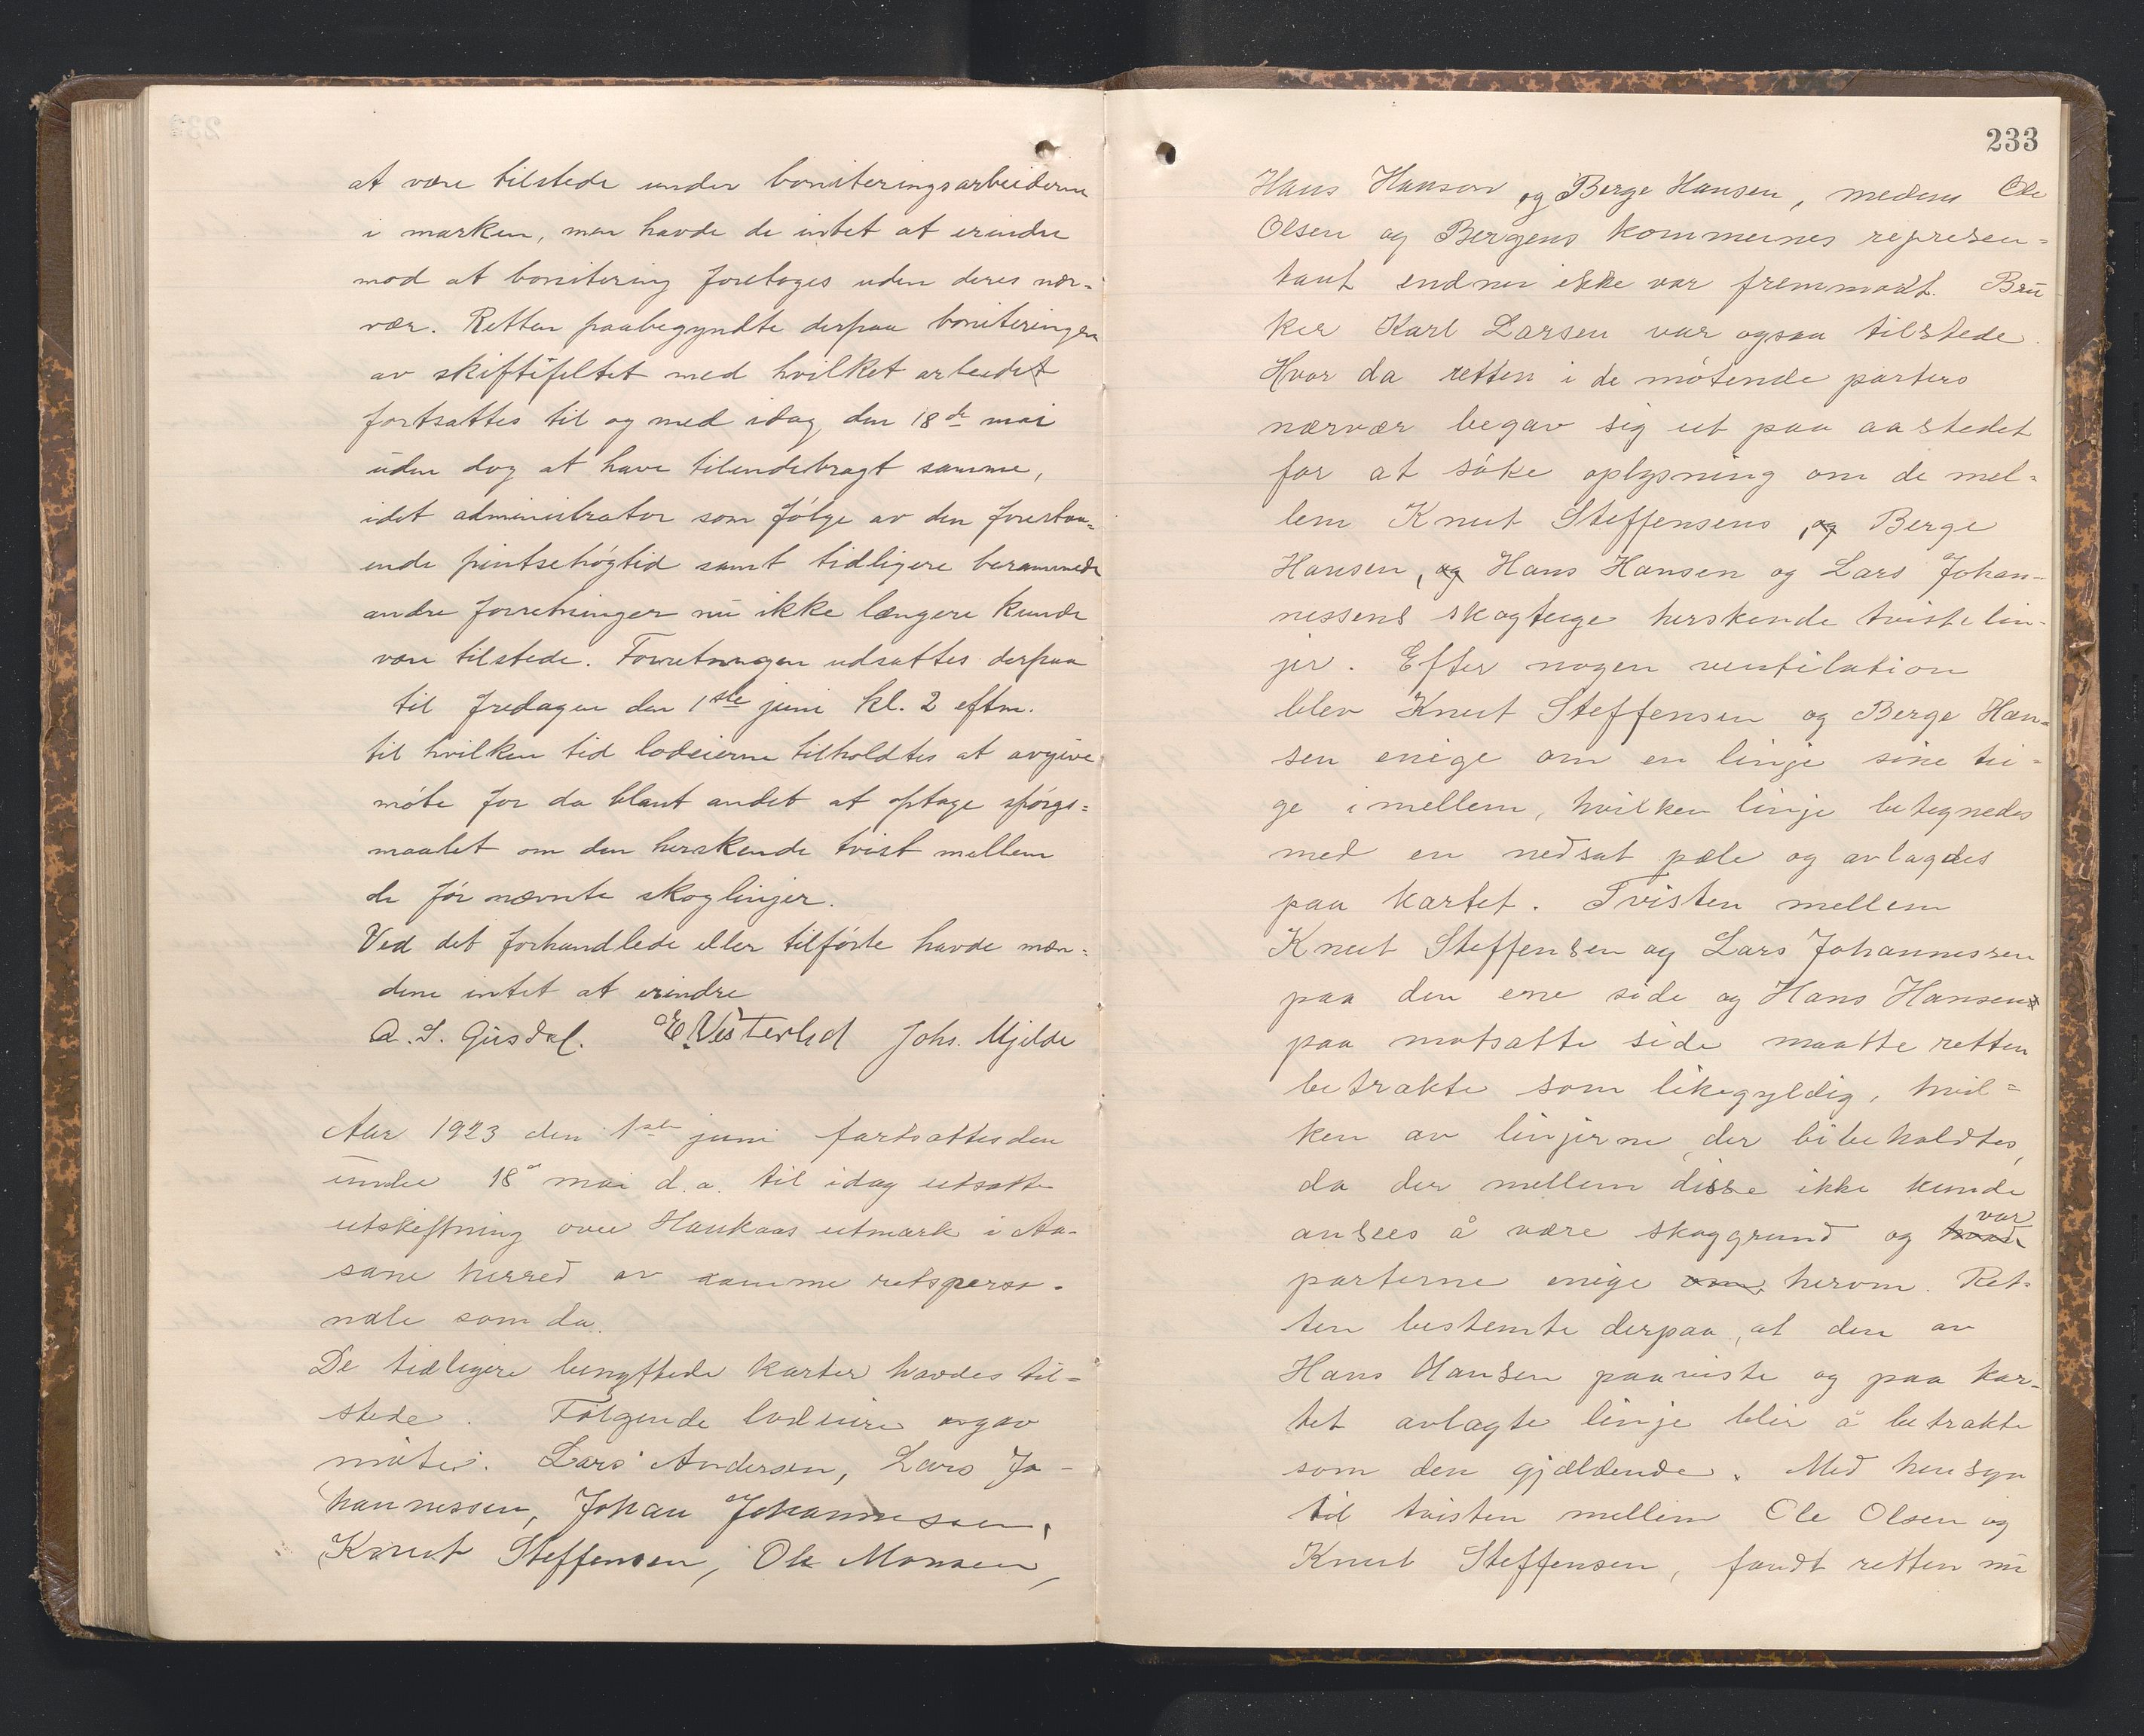 at være tilstede under boniteringsarbeiderne
i marken, men havde de intet at erindre
mod at bonitering foretages uden deres nær-
vær. Retten paabegyndte derpaa boniteringen
av skiftefeltet med hvilket arbeidet
fortsattes til og med idag den 18de mai
uden dog at have tilendebragt samme,
idet administrator som følge av den forestaa-
ende pintsehøgtid samt tidligere berammede
andre forretninger nu ikke længere kunde
være tilstede. Forretningen udsattes derpaa
til fredagen den 1ste juni kl. 2 eftm.
til hvilken tid lodeierne tilholdtes at avgive
møte for da blant andet at optage spørgs-
maalet om den herskende tvist mellem
de før nævnte skoglinjer.
Ved det forhandlede eller tilførte havde mæn-
dene intet at erindre
A. S. Gusdal. E. Vesterlid Johs. Mjelde
Aar 1923 den 1ste juni fortsattes den
under 18de mai d.a. til idag utsatte
utskiftning over Haukaas utmark i Aa-
sane herred av samme retsperso-
nale som da.
De tidligere benyttede karter havdes til-
stede. Følgende lodeiere avgav
møte: Lars Andersen, Lars Jo-
hannessen, Johan Johannessen,
Knut Steffensen, Ole Monsen,
233
Hans Hanson og Berge Hansen, medens Ole
Olsen og Bergens kommunes represen-
tant endnu ikke var fremmødt. Bru
ker Karl Larsen var ogsaa tilstede.
Hvor da retten i de møtende parters
nærvær begav sig ut paa aastedet
for at søke oplysning om de mel-
lem Knut Steffensens, og Berge
Hansen, og Hans Hansen og Lars Johan-
nessens skogteige herskende tvistelin-
jer. Efter nogen ventilation
blev Knut Steffensen og Berge Han-
sen enige om en linje sine tei-
ge imellem, hvilken linje betegnedes
med en nedsat pæle og avlagdes
paa kartet. Tvisten mellem
Knut Steffensen og Lars Johannessen
paa den ene side og Hans Hansen
paa motsatte side maatte retten
betrakte som likegyldig, hvil-
ken av linjerne der bibeholdtes,
da der mellem disse ikke kunde
ansees å være skoggrund og havde var
parterne enige om herom. Ret-
ten bestemte derpaa, at den av
Hans Hansen paaviste og paa kar-
tet avlagte linje blir å betrakte
som den gjældende. Med hensyn
til tvisten mellem Ole Olsen og
Knut Steffensen, fandt retten nu